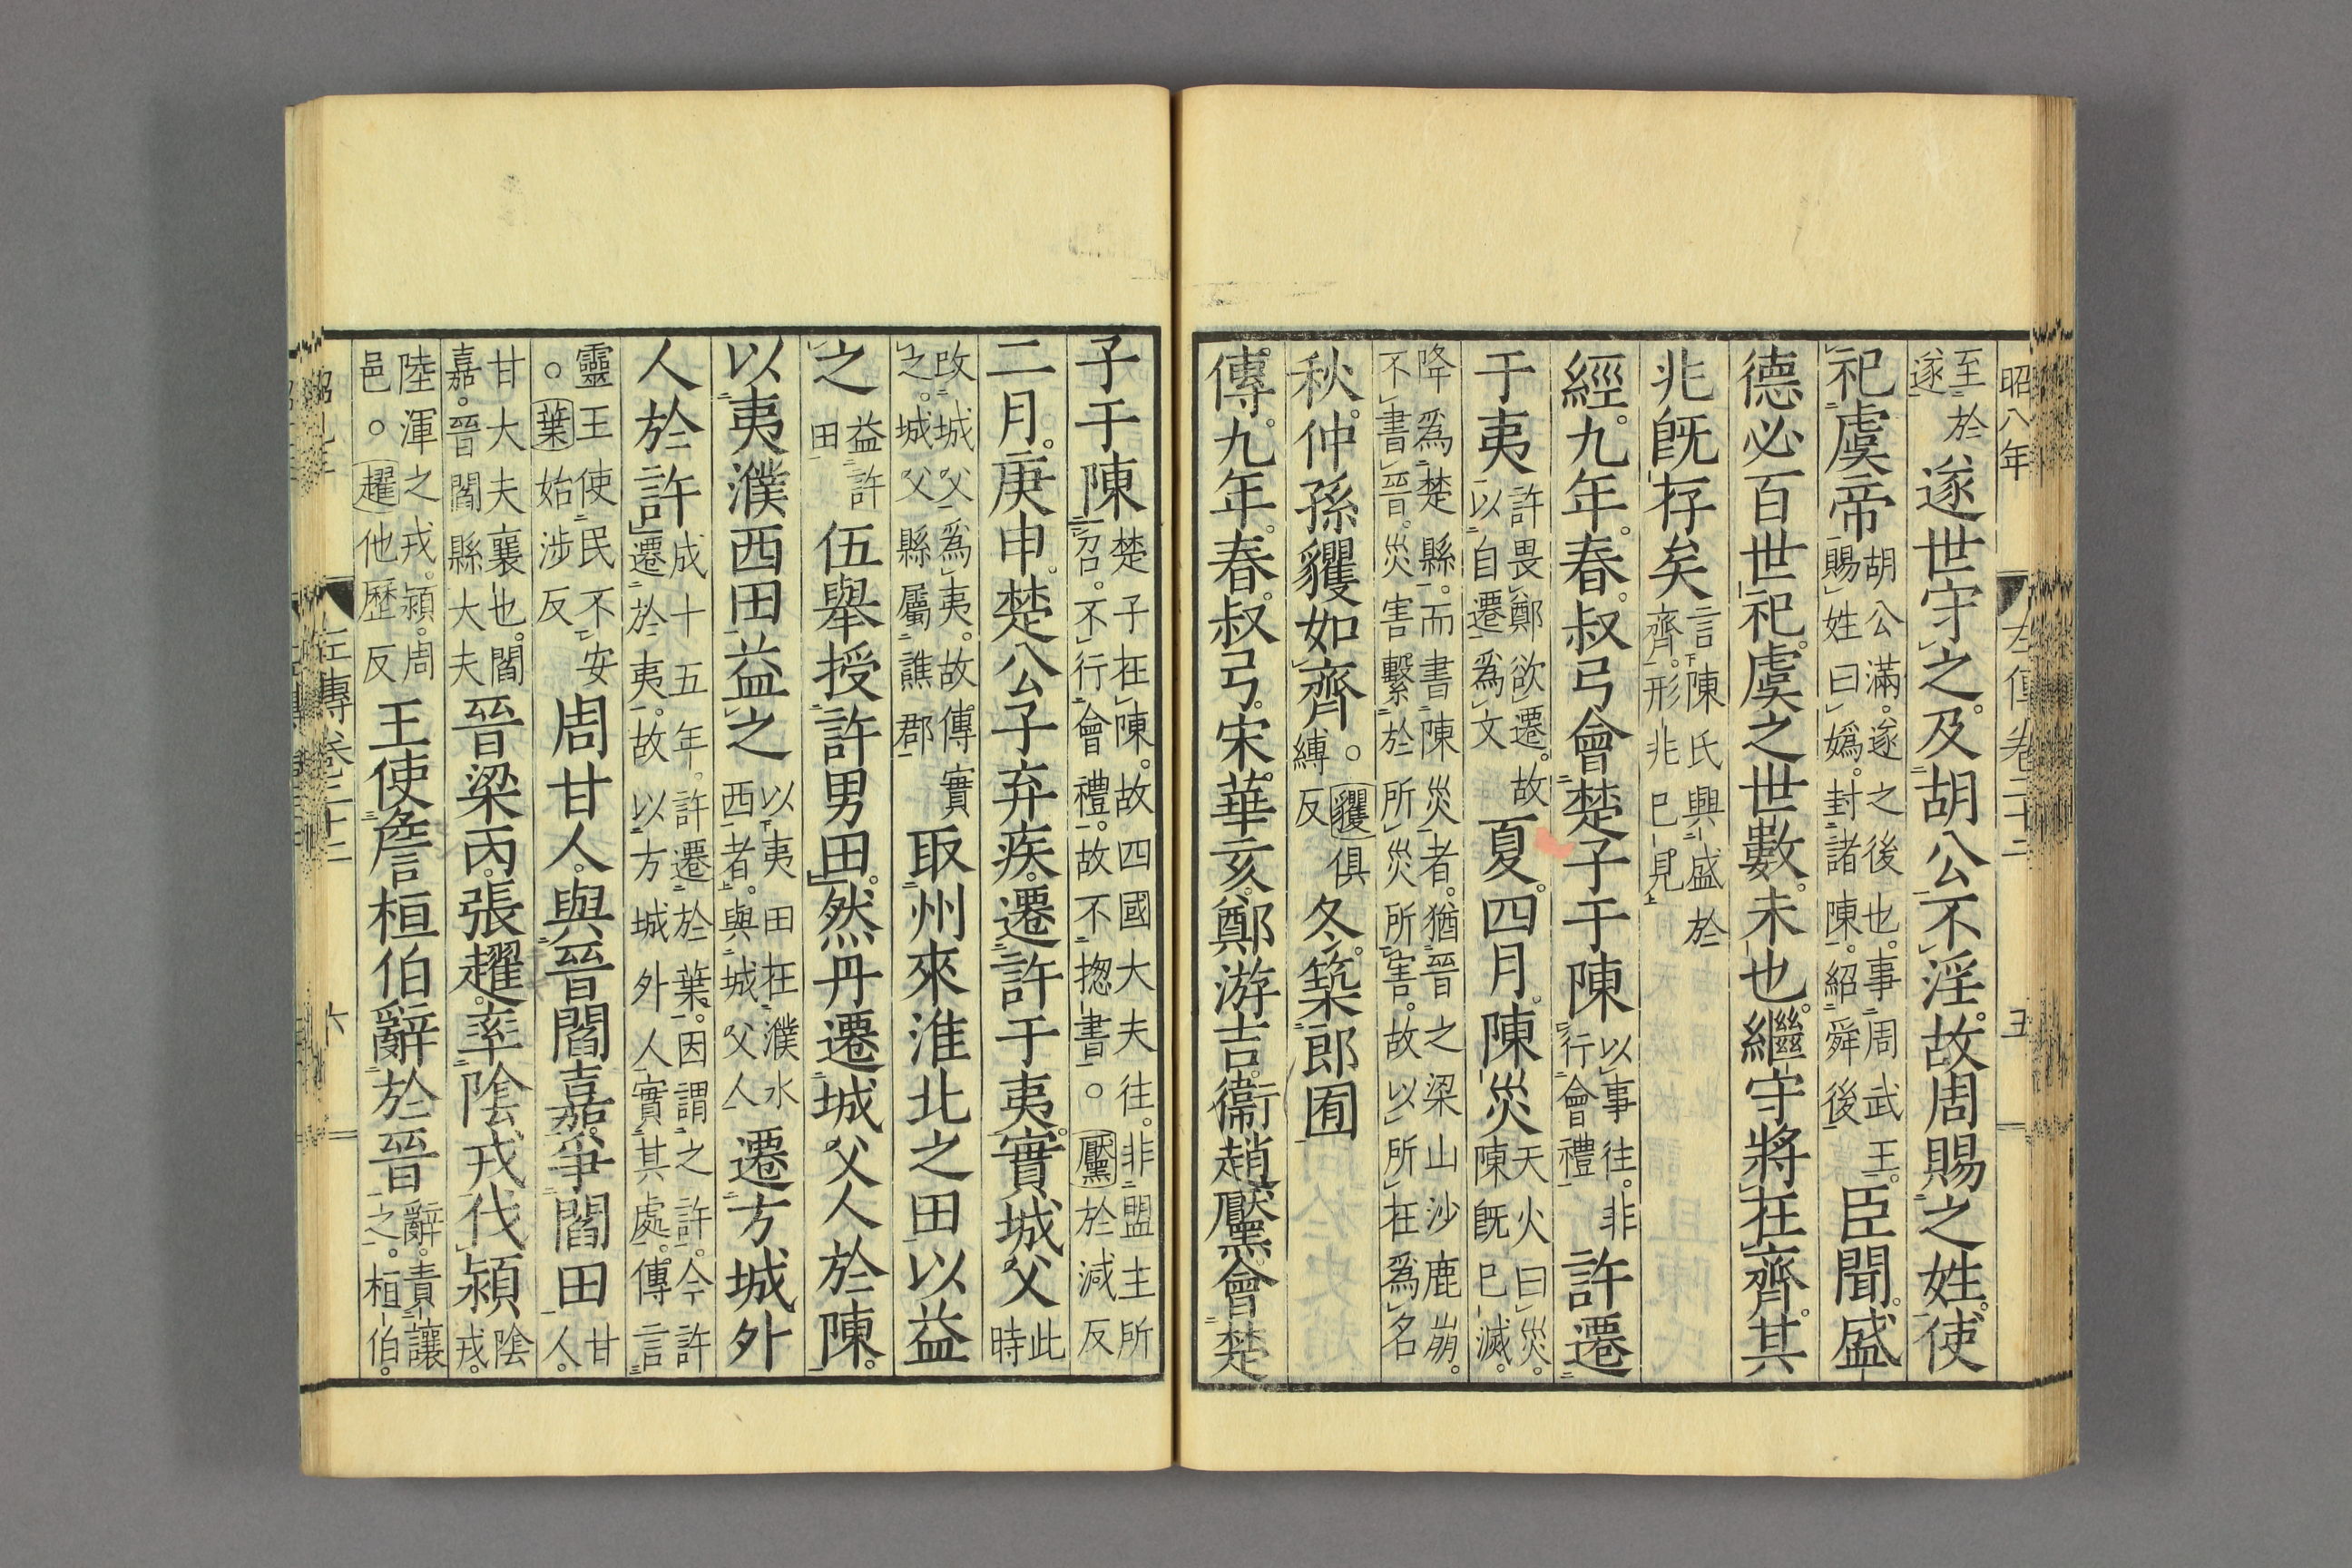 昭八年 左傳卷二十二 五
至於遂遂世守之。及胡公不淫。故周賜之姓。使
祀虞帝胡公滿。遂之後也。事周武王。賜姓曰嬀。封諸陳。紹舜後臣聞。盛
德必百世祀。虞之世數。未也。繼守將在齊。其
兆既存矣言陳氏興盛於齊。形兆已見
經。九年。春。叔弓會楚子于陳以事往。非行會禮許遷
于夷許畏鄭欲遷。故以自遷爲文夏。四月。陳災天火曰災。陳既已滅。
降爲楚縣。而書陳災者。猶晉之梁山沙鹿崩。不書晉。災害繫於所災所害。故以所在爲名
秋。仲孫貜如齊。貜俱縛反冬。築郎囿
傳。九年。春。叔弓。宋華亥。鄭游吉。衞趙黶。會楚
子于陳楚子在陳。故四國大夫往。非盟主所召。不行會禮。故不揔書。黶於減反
二月。庚申。楚公子弃疾。遷許于夷。實城父此時
改城父爲夷。故傳實之。城父縣屬譙郡取州來淮北之田以益
之益許田伍舉授許男田。然丹遷城父人於陳。
以夷濮西田益之以夷田在濮水西者。與城父人遷方城外
人於許成十五年。許遷於葉。因謂之許。今許遷於夷。故以方城外人實其處。傳言
靈王使民不安。葉始涉反周甘人。與晉閻嘉。爭閻田甘人。
甘大夫襄也。閻嘉。晉閻縣大夫晉梁丙。張趯。率陰戎伐潁陰戎。
陸渾之戎。潁。周邑。趯他歷反王使詹桓伯辭於晉辭。責讓之。桓伯。
左傳卷二十二 六